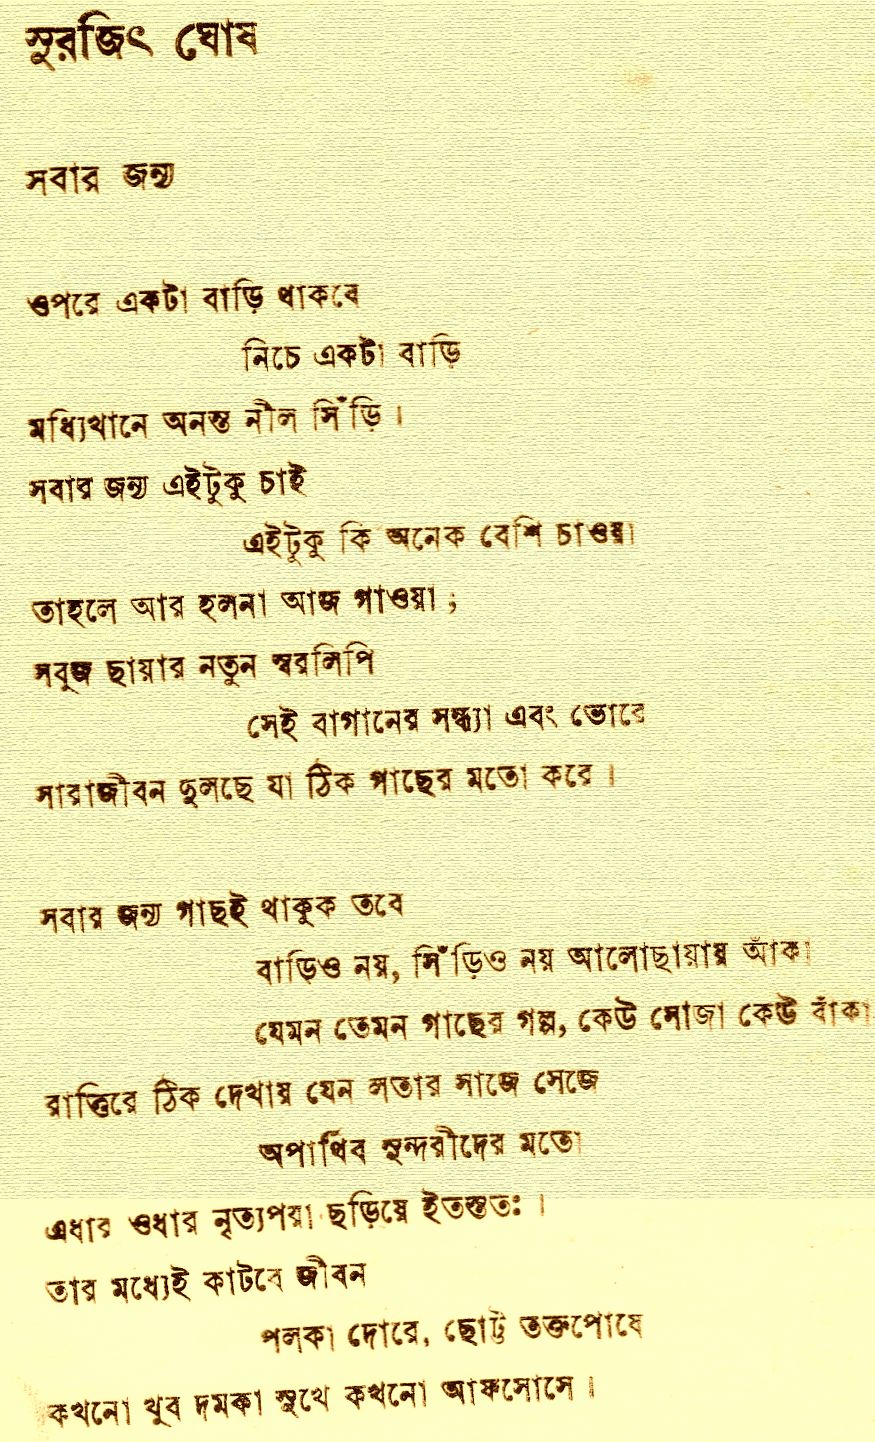 সুরজিৎ ঘোষ
সবার জন্য
ওপরে একটা বাড়ি থাকবে
নিচে একটা বাড়ি
মধ্যিখানে অনন্ত নীল সিঁড়ি ।
সবার জন্য এইটুকু চাই
এইটুকু কি অনেক বেশি চাওয়া
তাহলে আর হলনা আজ পাওয়া ;
সবুজ ছায়ার নতুন স্বরলিপি
সেই বাগানের সন্ধ্যা এবং ভোরে
সারাজীবন দুলছে যা ঠিক গাছের মতো করে ।
সবার জন্য গাছই থাকুক তবে
বাড়িও নয়, সিঁড়িও নয় আলোছায়ায় আঁকা
যেমন তেমন গাছের গল্প, কেউ সোজা কেউ বাঁকা
রাত্তিরে ঠিক দেখায় যেন লতার সাজে সেজে
অপার্থিব সুন্দরীদের মতো
এধার ওধার নৃত্যপরা ছড়িয়ে ইতস্ততঃ ।
তার মধ্যেই কাটবে জীবন
পলকা দোরে, ছোট্ট তক্তপোষে
কখনো খুব দমকা সুখে কখনো আফসোসে ।